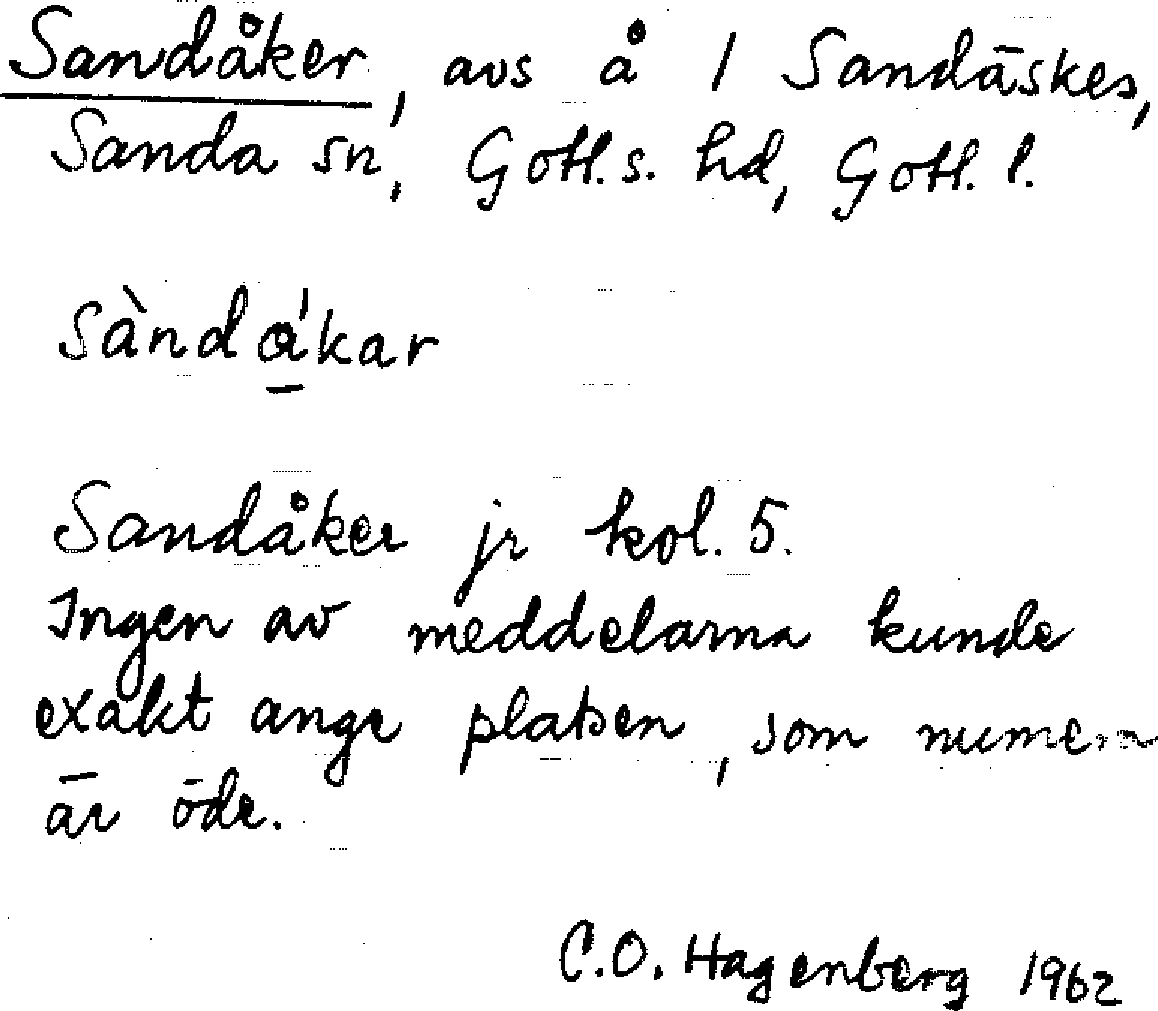 Sandåker, avs å 1 Sandäskes,
Sanda sn, Gotl. s. hd, Gotl. l.
Sàndá̲kar
Sandåker jr kol. 5.
Ingen av meddelarna kunde
exakt ange platsen, som numera
är öde.
C.O. Hagenberg 1962